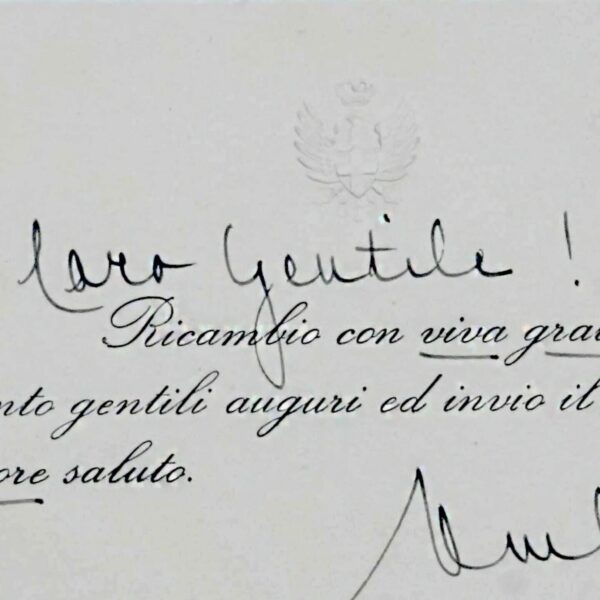 Caro Gentile!
Ricambio con viva gra
nto gentili auguri ed invio il
ore saluto.